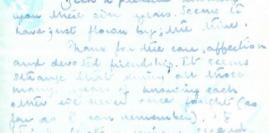 you these six years. Seems it
have just flown by, the time.
Thank for the care, affection
and devoted friendship. It seems
strange that during all those
many years of knowing each
other we never once fought (as
far as I can remember). I